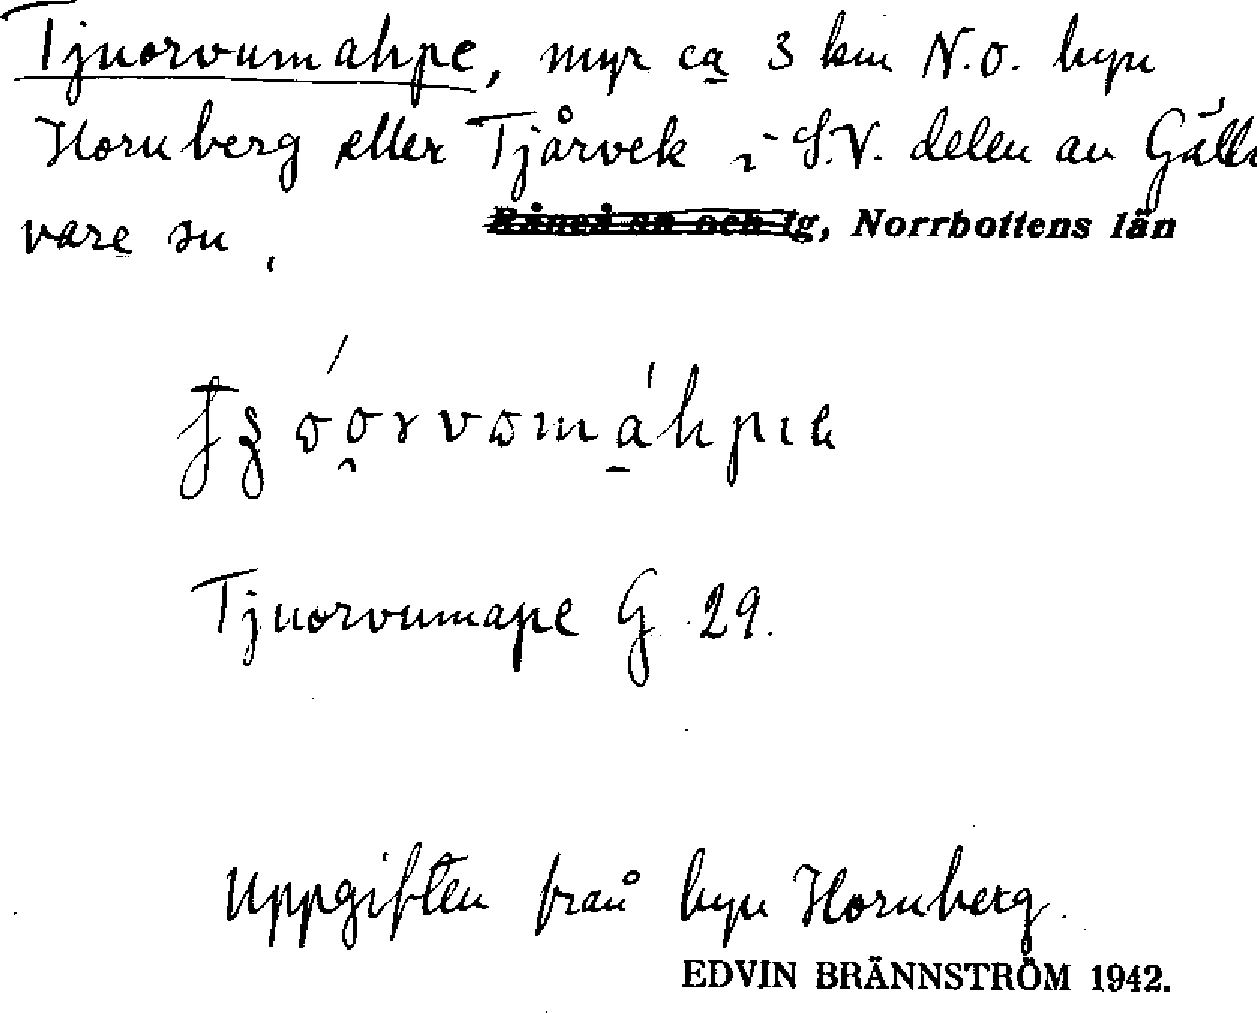 Tjuorvumahpe, myr ca 3 km N.O. byn
Hornberg eller Tjårvek i S.V. delen av Gälli
vare sn.
Råneå sn och tg, Norrbottens län
Tjuorvumape G 29.
Uppgiften från byn Hornberg.
EDVIN BRÄNNSTRÖM 1942.